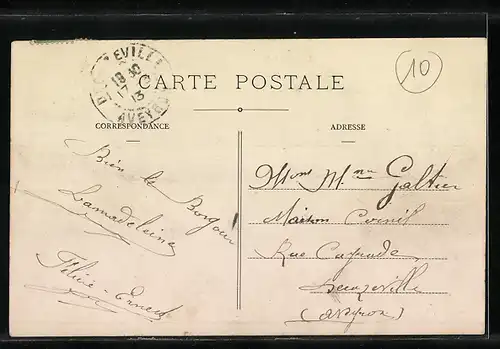 EVILLE
18 30
13
AVEYRON
10
CARTE POSTALE
CORRESPONDANCE
ADRESSE
Bien le Bonjour
Lamadeleine
Félicie - Ernest
Mme Galtier
Maison Cornil
Rue Cayrade
Decazeville
(Aveyron)